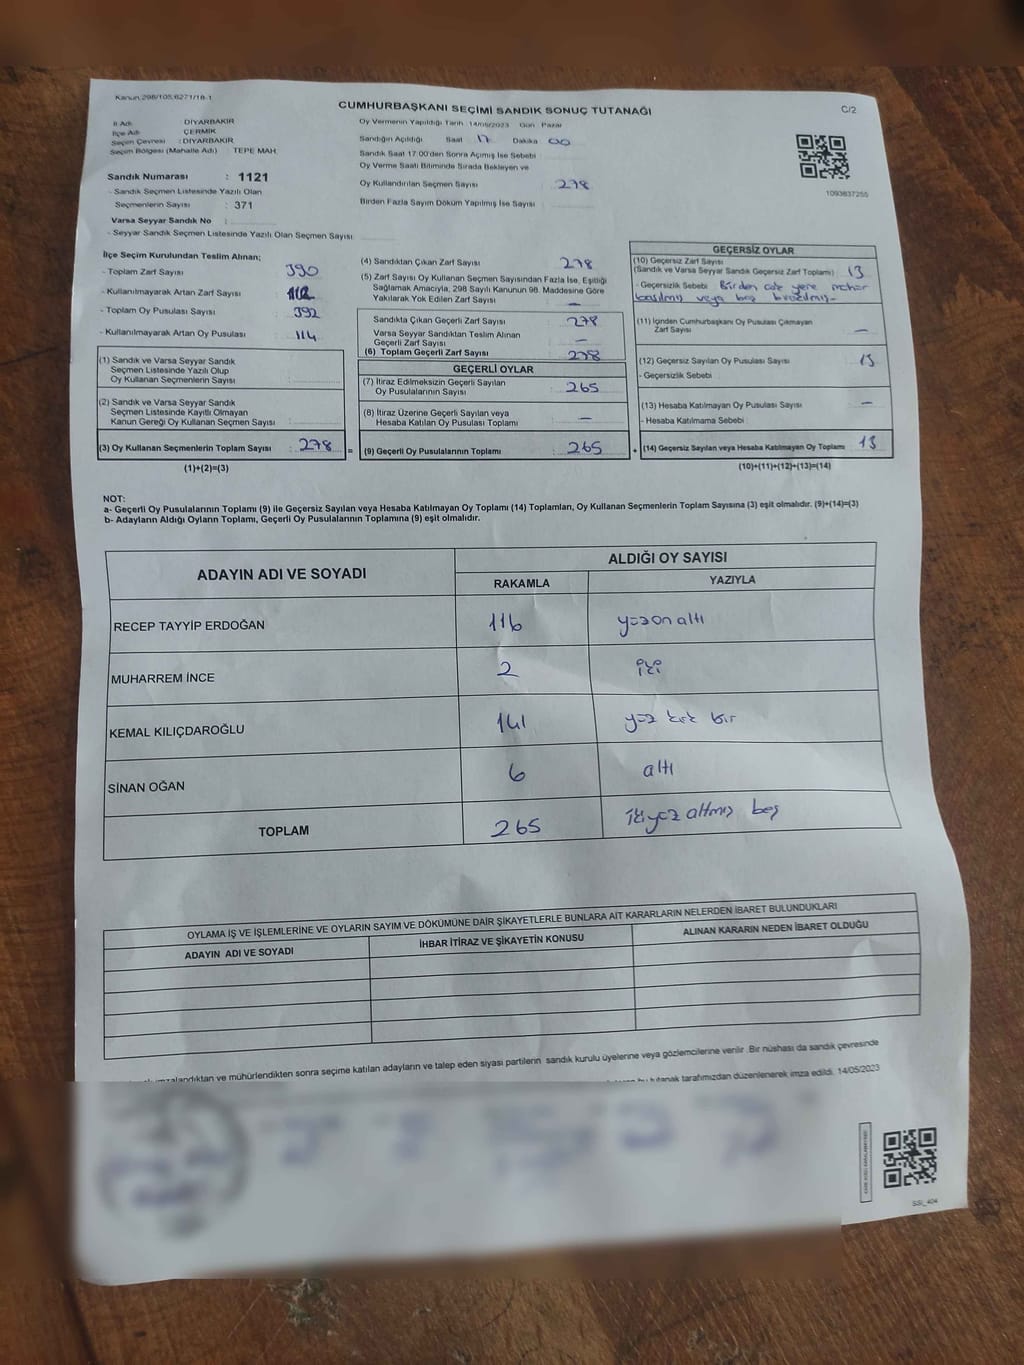 Kanun 298/105,6271/18-1
CUMHURBAŞKANI SEÇİMİ SANDIK SONUÇ TUTANAĞI
C/2
İl Adı : DİYARBAKIR
İlçe Adı : ÇERMİK
Seçim Çevresi : DİYARBAKIR
Seçim Bölgesi (Mahalle Adı) : TEPE MAH.
Sandık Numarası : 1121
- Sandık Seçmen Listesinde Yazılı Olan
Seçmenlerin Sayısı : 371
Varsa Seyyar Sandık No :
- Seyyar Sandık Seçmen Listesinde Yazılı Olan Seçmen Sayısı
Oy Vermenin Yapıldığı Tarih 14/05/2023 Gün Pazar
Sandığın Açıldığı Saat 17 Dakika 00
Sandık Saat 17:00'den Sonra Açımış İse Sebebi
Oy Verme Saati Bitiminde Sırada Bekleyen ve
Oy Kullandırılan Seçmen Sayısı : 278
Birden Fazla Sayım Döküm Yapılmış İse Sayısı :
1093837255
İlçe Seçim Kurulundan Teslim Alınan;
- Toplam Zarf Sayısı : 390
- Kullanılmayarak Artan Zarf Sayısı : 112
- Toplam Oy Pusulası Sayısı : 392
- Kullanılmayarak Artan Oy Pusulası : 114
(1) Sandık ve Varsa Seyyar Sandık
Seçmen Listesinde Yazılı Olup
Oy Kullanan Seçmenlerin Sayısı :
(2) Sandık ve Varsa Seyyar Sandık
Seçmen Listesinde Kayıtlı Olmayan
Kanun Gereği Oy Kullanan Seçmen Sayısı :
(3) Oy Kullanan Seçmenlerin Toplam Sayısı : 278 =
(1)+(2)=(3)
(4) Sandıktan Çıkan Zarf Sayısı : 278
(5) Zarf Sayısı Oy Kullanan Seçmen Sayısından Fazla İse, Eşitliği
Sağlamak Amacıyla, 298 Sayılı Kanunun 98. Maddesine Göre
Yakılarak Yok Edilen Zarf Sayısı : —
Sandıkta Çıkan Geçerli Zarf Sayısı : 278
Varsa Seyyar Sandıktan Teslim Alınan
Geçerli Zarf Sayısı : —
(6) Toplam Geçerli Zarf Sayısı : 278
GEÇERLİ OYLAR
(7) İtiraz Edilmeksizin Geçerli Sayılan
Oy Pusulalarının Sayısı : 265
(8) İtiraz Üzerine Geçerli Sayılan veya
Hesaba Katılan Oy Pusulası Toplamı : —
(9) Geçerli Oy Pusulalarının Toplamı : 265 +
GEÇERSİZ OYLAR
(10) Geçersiz Zarf Sayısı
(Sandık ve Varsa Seyyar Sandık Geçersiz Zarf Toplamı) : 13
- Geçersizlik Sebebi : Birden çok yere mühür
basılmış veya boş bırakılmış-
(11) İçinden Cumhurbaşkanı Oy Pusulası Çıkmayan
Zarf Sayısı : —
(12) Geçersiz Sayılan Oy Pusulası Sayısı : 13
- Geçersizlik Sebebi :
(13) Hesaba Katılmayan Oy Pusulası Sayısı : —
- Hesaba Katılmama Sebebi :
(14) Geçersiz Sayılan veya Hesaba Katılmayan Oy Toplamı : 13
(10)+(11)+(12)+(13)=(14)
NOT:
a- Geçerli Oy Pusulalarının Toplamı (9) ile Geçersiz Sayılan veya Hesaba Katılmayan Oy Toplamı (14) Toplamları, Oy Kullanan Seçmenlerin Toplam Sayısına (3) eşit olmalıdır. (9)+(14)=(3)
b- Adayların Aldığı Oyların Toplamı, Geçerli Oy Pusulalarının Toplamına (9) eşit olmalıdır.
ADAYIN ADI VE SOYADI
ALDIĞI OY SAYISI
RAKAMLA YAZIYLA
RECEP TAYYİP ERDOĞAN 116 yüzon altı
MUHARREM İNCE 2 iki
KEMAL KILIÇDAROĞLU 141 yüz kırk bir
SİNAN OĞAN 6 altı
TOPLAM 265 ikiyüz altmış beş
OYLAMA İŞ VE İŞLEMLERİNE VE OYLARIN SAYIM VE DÖKÜMÜNE DAİR ŞİKAYETLERLE BUNLARA AİT KARARLARIN NELERDEN İBARET BULUNDUKLARI
ADAYIN ADI VE SOYADI İHBAR İTİRAZ VE ŞİKAYETİN KONUSU ALINAN KARARIN NEDEN İBARET OLDUĞU
imzalandıktan ve mühürlendikten sonra seçime katılan adayların ve talep eden siyasi partilerin sandık kurulu üyelerine veya gözlemcilerine verilir. Bir nüshası da sandık çevresinde
bu tutanak tarafımızdan düzenlenerek imza edildi. 14/05/2023
SSI_404